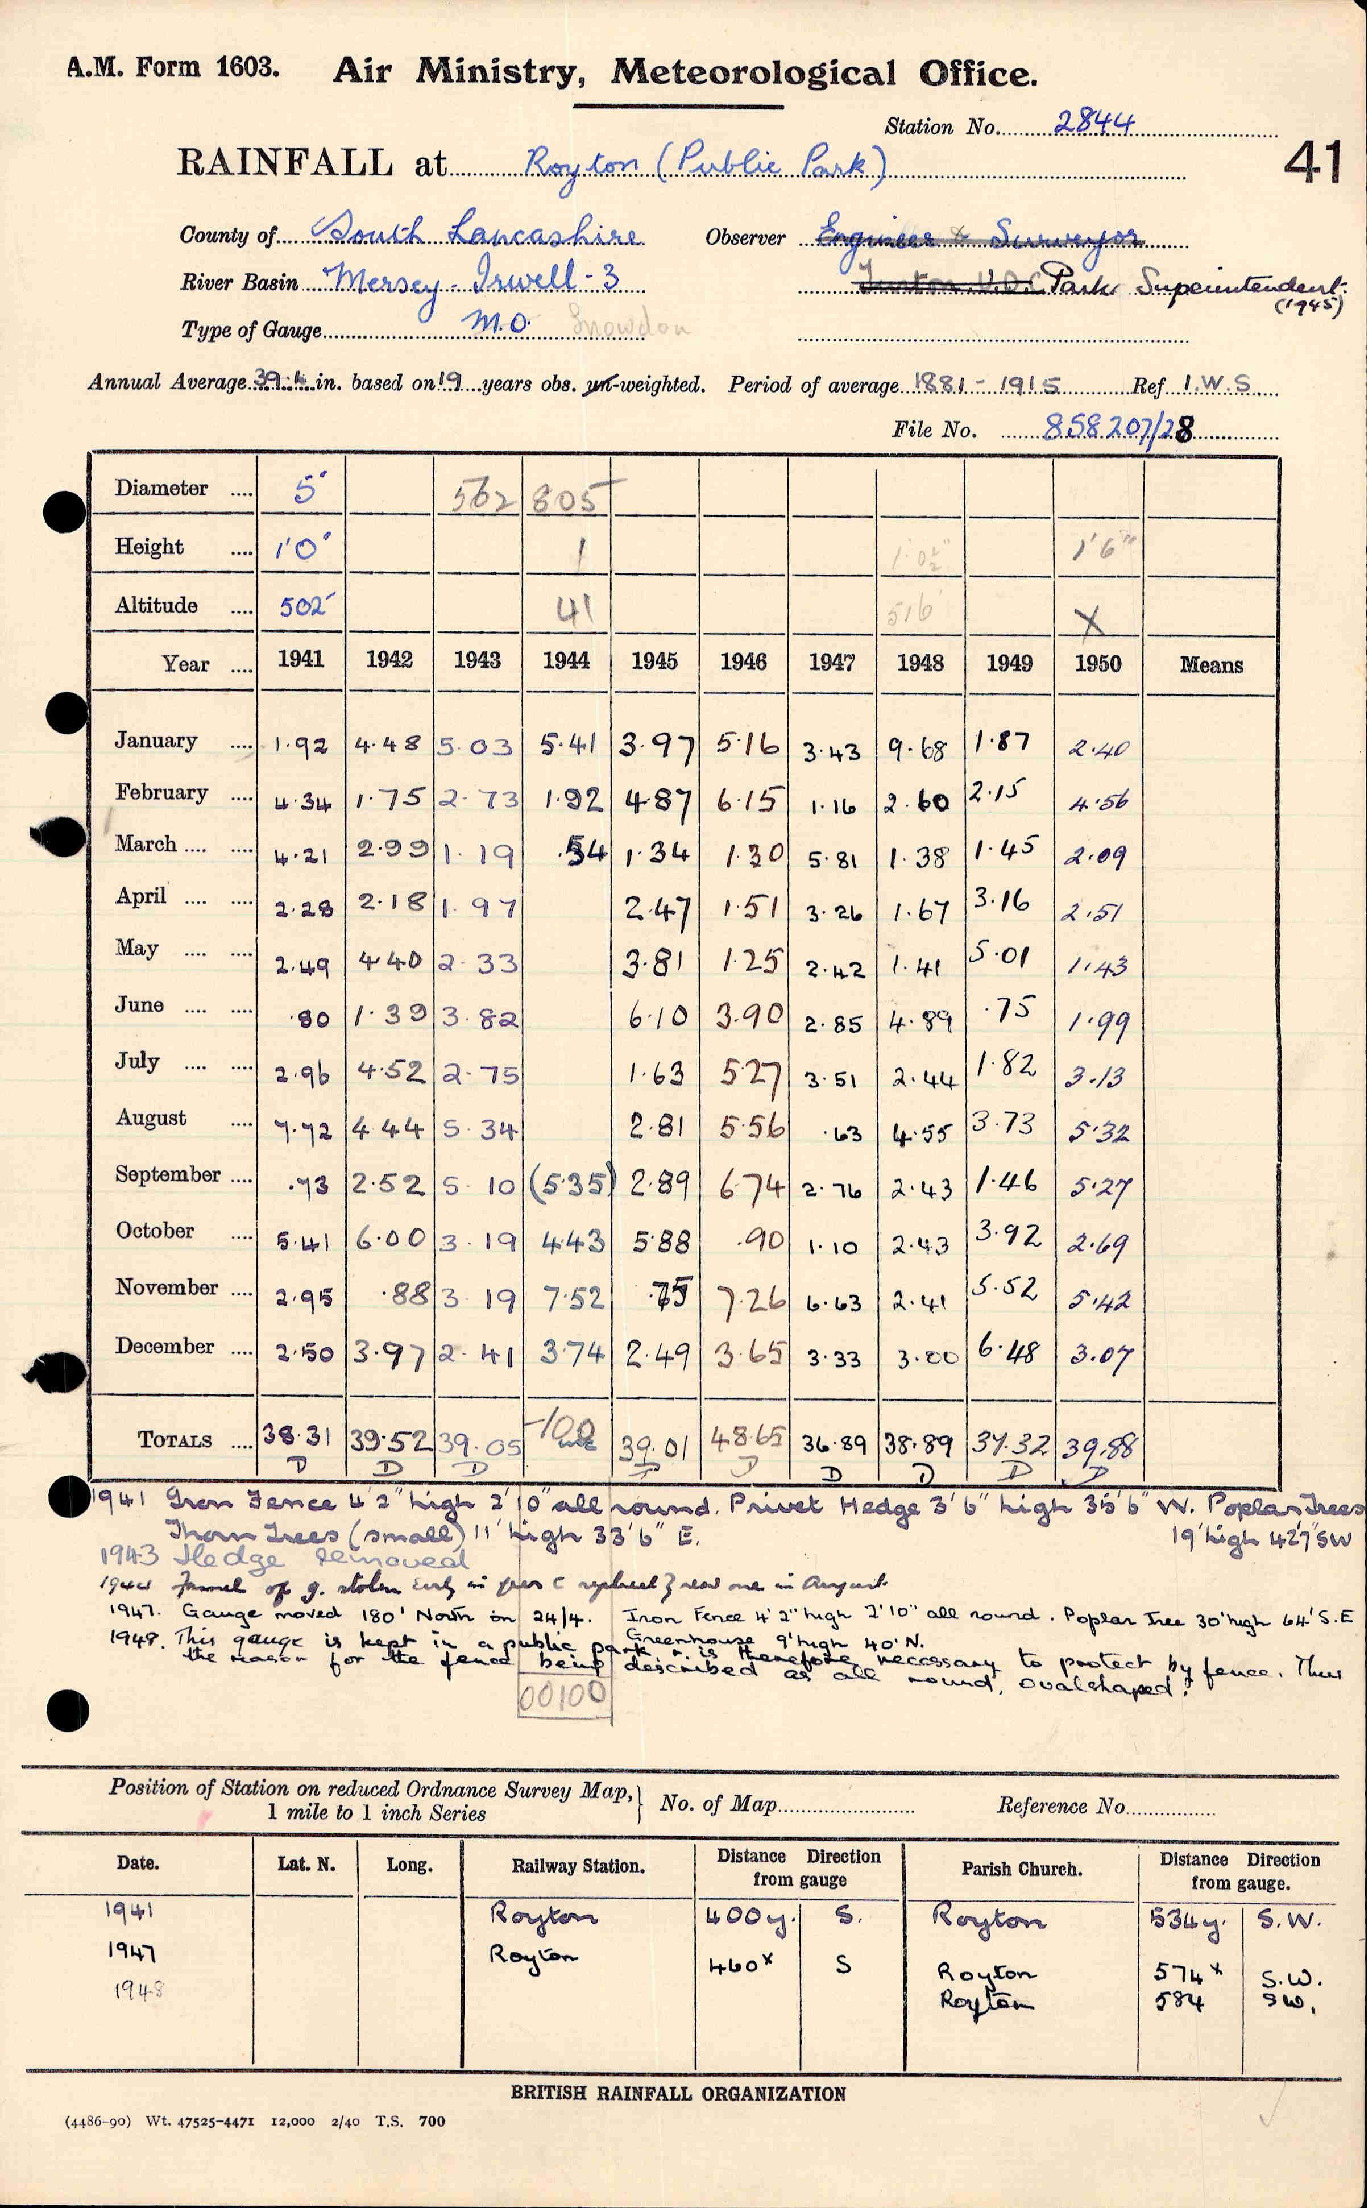 A.M. Form 1603. Air Ministry, Meteorological Office.
Station No. 2844
41
RAINFALL at Royton (Public Park)
County of South Lancashire Observer Engineer & Surveyor
River Basin Mersey-Irwell-3 Park Superintendent.
(1945)
Type of Gauge M.O. Snowdon
Annual Average 39.4 in. based on 19 years obs. un-weighted. Period of average 1881-1915 Ref I.W.S
File No. 858207/28
Diameter .... 5" 562 805
Height .... 1'0" 1 1'0½" 1'6"
Altitude .... 502' 41 516' X
Year .... 1941 1942 1943 1944 1945 1946 1947 1948 1949 1950 Means
January .... 1.92 4.48 5.03 5.41 3.97 5.16 3.43 9.68 1.87 2.40
February .... 4.34 1.75 2.73 1.92 4.87 6.15 1.16 2.60 2.15 4.56
March .... .... 4.21 2.99 1.19 .54 1.34 1.30 5.81 1.38 1.45 2.09
April .... .... 2.28 2.18 1.97 2.47 1.51 3.26 1.67 3.16 2.51
May .... .... 2.49 4.40 2.33 3.81 1.25 2.42 1.41 5.01 1.43
June .... .... .80 1.39 3.82 6.10 3.90 2.85 4.89 .75 1.99
July .... .... 2.96 4.52 2.75 1.63 5.27 3.51 2.44 1.82 3.13
August .... 7.72 4.44 5.34 2.81 5.56 .63 4.55 3.73 5.32
September .... .73 2.52 5.10 (5.35) 2.89 6.74 2.76 2.43 1.46 5.27
October .... 5.41 6.00 3.19 4.43 5.88 .90 1.10 2.43 3.92 2.69
November .... 2.95 .88 3.19 7.52 .75 7.26 6.63 2.41 5.52 5.42
December .... 2.50 3.97 2.41 3.74 2.49 3.65 3.33 3.00 6.48 3.07
TOTALS .... 38.31 39.52 39.05 -100 39.01 48.65 36.89 38.89 37.32 39.88
D D D D D D D D D
1941 Iron Fence 4'2" high 2'10" all round. Privet Hedge 3'6" high 35'6" W. Poplar Trees
Thorn Trees (small) 11' high 33'6" E. 19' high 42'7 SW
1943 Hedge removed
1944 Funnel of g. stolen early in year & replaced new one in August.
1947. Gauge moved 180' North on 24/4. Iron Fence 4'2" high 2'10" all round. Poplar Tree 30' high 64' S.E
Greenhouse 9' high 40' N.
1948. This gauge is kept in a public park & is therefore necessary to protect by fence. Thus
the reason for the fence being described as all round, ovalshaped.
00100
Position of Station on reduced Ordnance Survey Map,} No. of Map Reference No.
1 mile to 1 inch Series
Date. Lat. N. Long. Railway Station. Distance Direction from gauge Parish Church. Distance Direction from gauge.
1941 Royton 400y. S. Royton 534y. S.W.
1947 Royton 460x S Royton 574x S.W.
1948 Royton 584 SW.
BRITISH RAINFALL ORGANIZATION
(4486-90) Wt. 47525-4471 12,000 2/40 T.S. 700